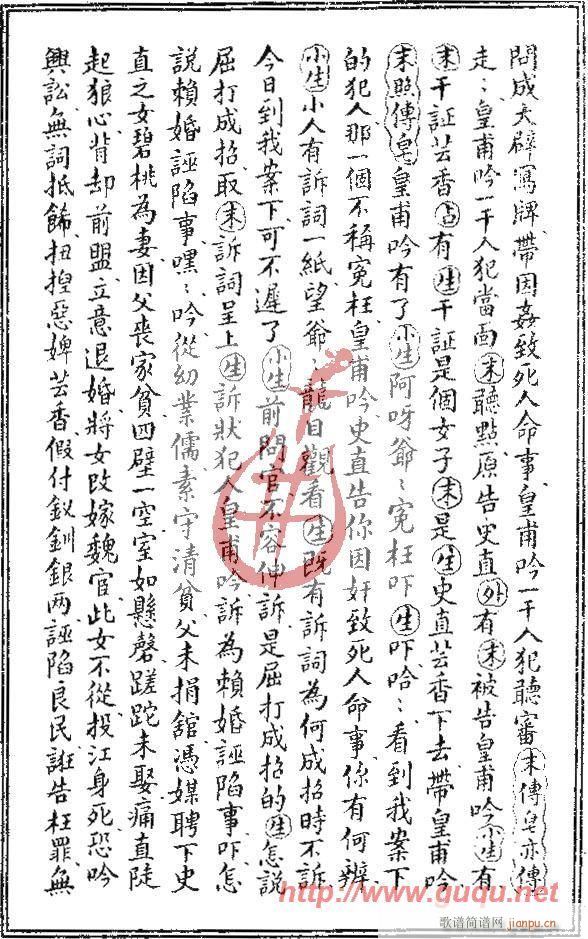 問成大辟寫牌帶因姦致死人命事皇甫吟一干人犯聽審末傳皂亦傳
走〻皇甫吟一干人犯當面末聽點原告史直外有末被告皇甫吟小生有
末干証芸香占有生干証是個女子末是生史直芸香下去帶皇甫吟
末照傳皂皇甫吟有了小生阿呀爺〻寃枉吓生吓哈〻看到我案下
的犯人那一個不稱寃枉皇甫吟史直告你因奸致死人命事你有何辨
小生小人有訴詞一紙望爺〻龍目觀看生既有訴詞為何成招時不訴
今日到我案下可不遲了小生前問官不容伸訴是屈打成招的生怎説
屈打成招取末訴詞呈上生訴狀犯人皇甫吟訴為賴婚誣陷事吓怎
説賴婚誣陷事嘿〻吟從幼業儒素守清貧父未捐舘憑媒聘下史
直之女碧桃為妻因父喪家貧四壁一空室如懸磬蹉跎未娶痛直陡
起狼心背却前盟立意退婚將女改嫁魏官此女不從投江身死恐吟
興訟無詞抵餙扭揑惡婢芸香假付釵釧銀两誣陷良民誑告枉罪無
http://www.guqu.net
歌谱简谱网
jianpu.cn